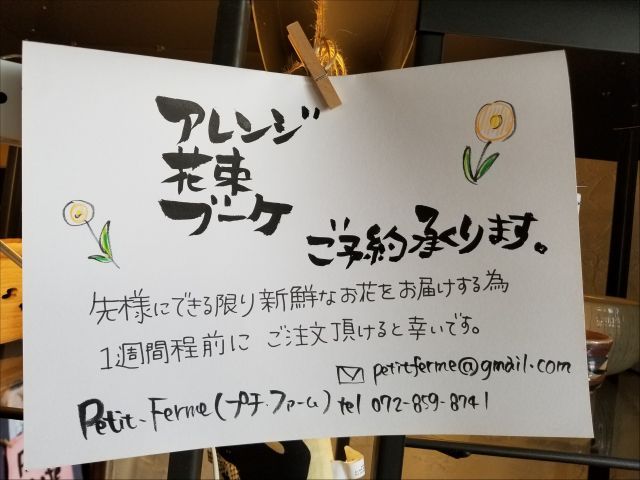 アレンジ
花束
ブーケ
ご予約承ります。
先様にできる限り新鮮なお花をお届けする為
1週間程前に ご注文頂けると幸いです。
petitferme@gmail.com
Petit-Ferme(プチ・ファーム) tel 072-859-8741